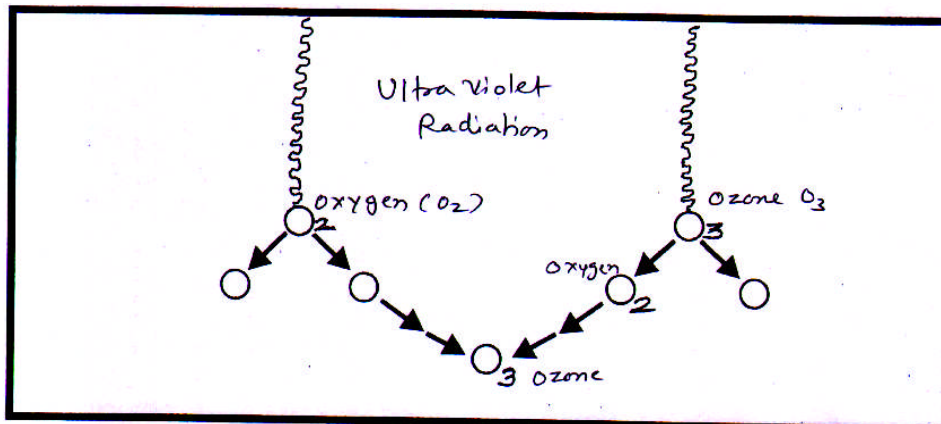 Ultra Violet
Radiation
Oxygen (O2)
2
Ozone O3
3
Oxygen
2
3 Ozone